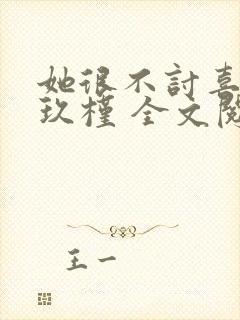 她很不討喜
玖槿 全文閱
王一